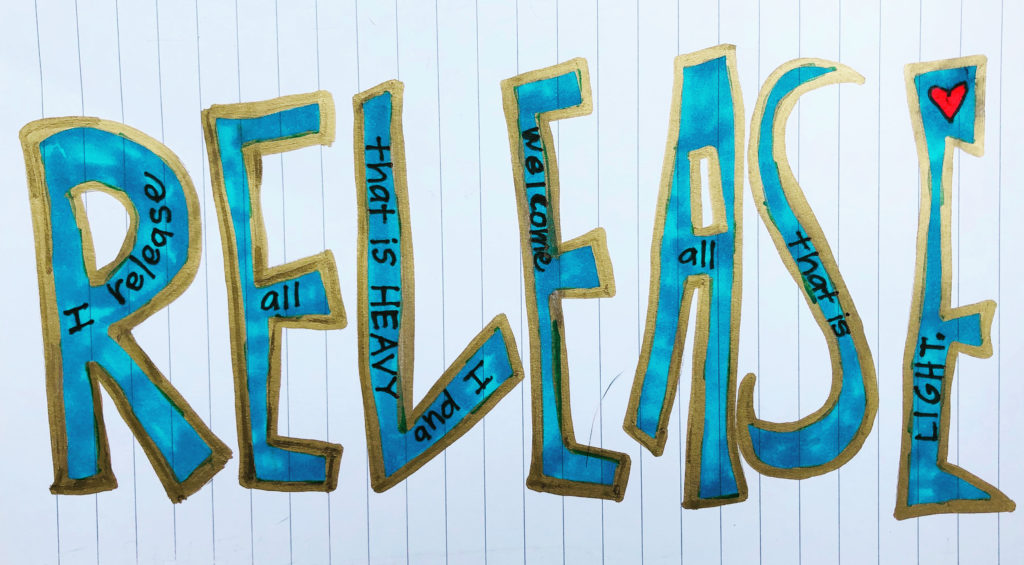 RELEASE
I release
all
that is HEAVY
and I
welcome
all
that is
LIGHT.